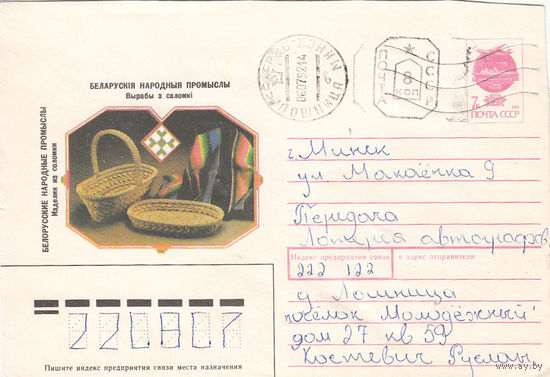 БЕЛАРУСКІЯ НАРОДНЫЯ ПРОМЫСЛЫ
Вырабы з саломкі
БЕЛОРУССКИЕ НАРОДНЫЕ ПРОМЫСЛЫ
Изделия из соломки
060792 14
ПОЧТА СССР
8
КОП
7к
ПОЧТА СССР
г. Минск
ул Макаёнка 9
Передача
Лотерея автографов
Индекс предприятия связи и адрес отправителя
222 122
д Лошница
посёлок Молодёжный
дом 27 кв 59
Костевич Руслан
220807
Пишите индекс предприятия связи места назначения
www.ay.by